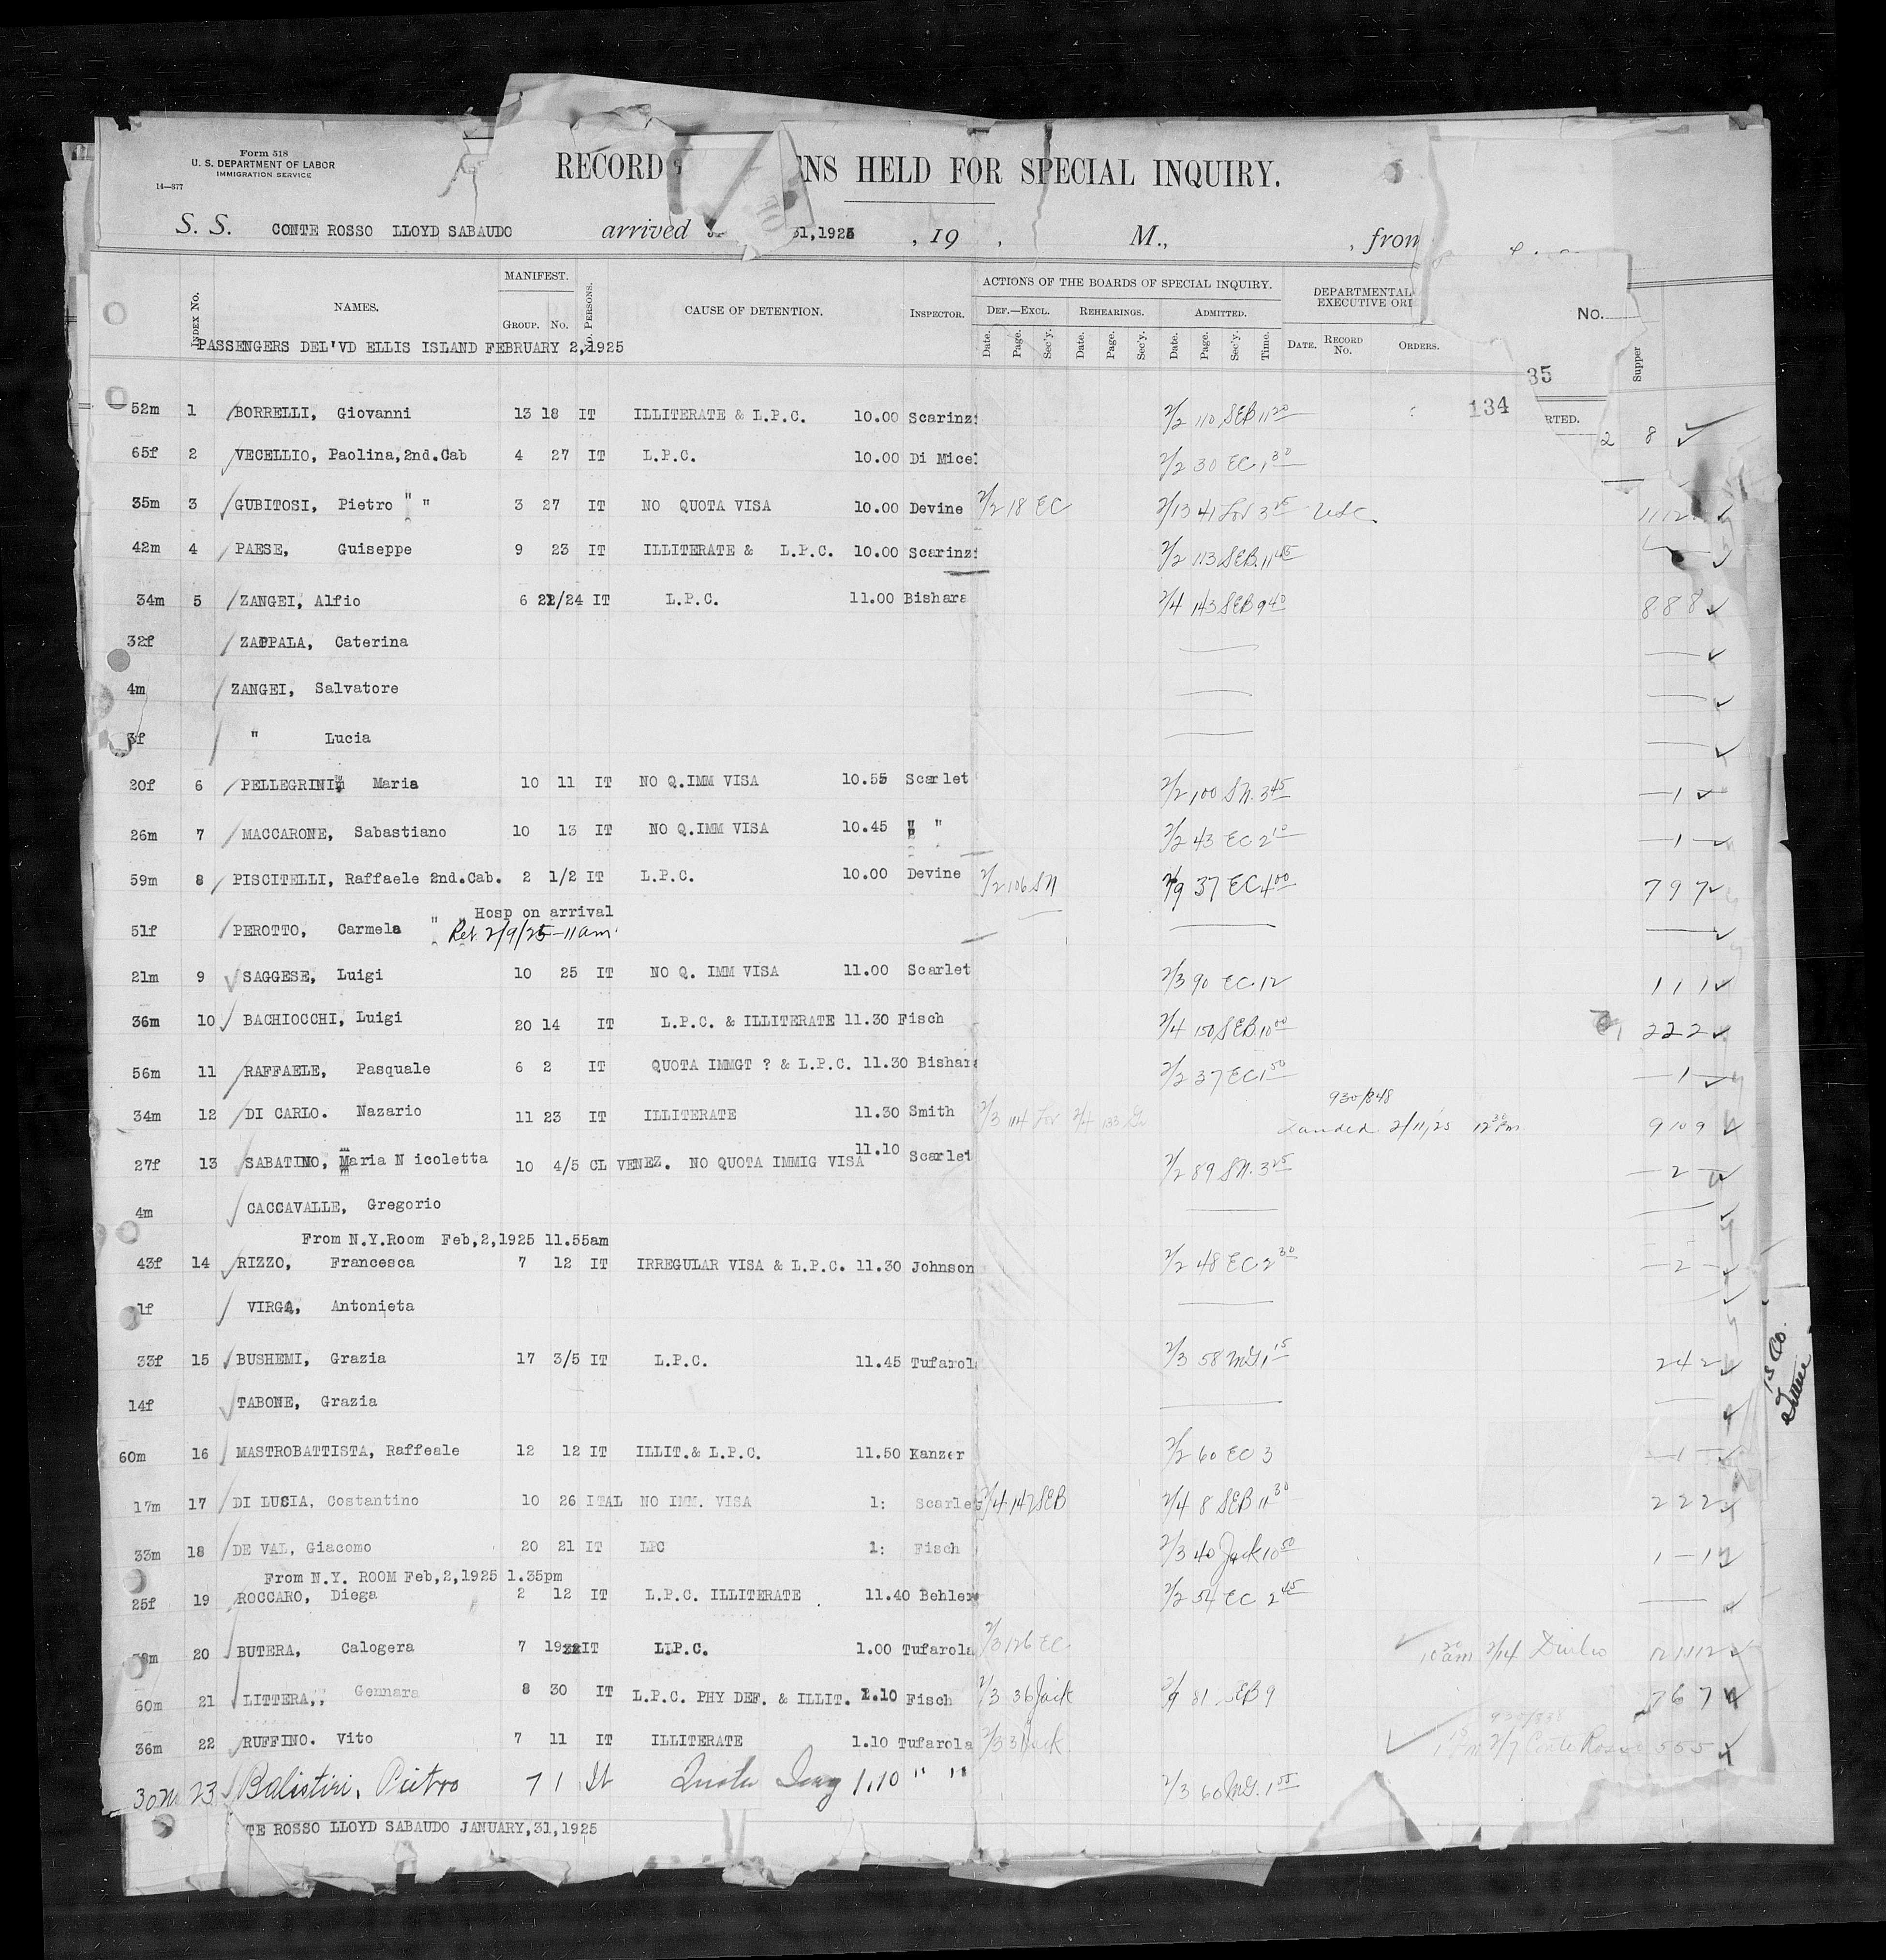 Form 518
U. S. DEPARTMENT OF LABOR
IMMIGRATION SERVICE
14—877
RECORD ENS HELD FOR SPECIAL INQUIRY.
S. S. CONTE ROSSO LLOYD SABAUDO arrived 31,1925 , 19 , M., , from
INDEX No. NAMES. MANIFEST. GROUP. No. No. PERSONS. CAUSE OF DETENTION. INSPECTOR. ACTIONS OF THE BOARDS OF SPECIAL INQUIRY. DEPARTMENTAL EXECUTIVE ORD No.
DEF.—EXCL. REHEARINGS. ADMITTED.
Date. Page. Sec'y. Date. Page. Sec'y. Date. Page. Sec'y. Time. DATE. RECORD No. ORDERS. Supper
PASSENGERS DEL'VD ELLIS ISLAND FEBRUARY 2,1925
35
134 RTED.
52m 1 BORRELLI, Giovanni 13 18 IT ILLITERATE & L.P.C. 10.00 Scarinzi 2/2 110 SEB 11 20 2 8
65f 2 VECELLIO, Paolina,2nd.Cab 4 27 IT L.P.C. 10.00 Di Micel 2/2 30 EC 1 30
35m 3 GUBITOSI, Pietro " " 3 27 IT NO QUOTA VISA 10.00 Devine 2/2 18 EC 2/13 41 3 25 1112
42m 4 PAESE, Guiseppe 9 23 IT ILLITERATE & L.P.C. 10.00 Scarinzi 2/2 113 SEB. 11 45
34m 5 ZANGEI, Alfio 6 22/24 IT L.P.C. 11.00 Bishara 2/4 143 SEB 9 40 888
32f ZAPPALA, Caterina
4m ZANGEI, Salvatore
3f " Lucia
20f 6 PELLEGRINI, Maria 10 11 IT NO Q.IMM VISA 10.55 Scarlet 2/2 100 SN. 3 45 — 1 —
26m 7 MACCARONE, Sabastiano 10 13 IT NO Q.IMM VISA 10.45 " " 2/2 43 EC 2 10 — 1 —
59m 8 PISCITELLI, Raffaele 2nd.Cab. 2 1/2 IT L.P.C. 10.00 Devine 2/2 106 SN 2/9 37 EC 4 00 797
Hosp on arrival
51f PEROTTO, Carmela " " Rel. 2/9/25-11am.
21m 9 SAGGESE, Luigi 10 25 IT NO Q. IMM VISA 11.00 Scarlet 2/3 90 EC. 12 111
36m 10 BACHIOCCHI, Luigi 20 14 IT L.P.C. & ILLITERATE 11.30 Fisch 2/4 150 SEB. 10 00 222
56m 11 RAFFAELE, Pasquale 6 2 IT QUOTA IMMGT ? & L.P.C. 11.30 Bishara 2/2 37 EC 1 50 — 1 —
930/848
34m 12 DI CARLO. Nazario 11 23 IT ILLITERATE 11.30 Smith 2/3 114 2/4 133 Landed 2/11/25 12 30 Pm 9109
27f 13 SABATINO, Maria N icoletta 10 4/5 CL VENEZ. NO QUOTA IMMIG VISA 11.10 Scarlet 2/2 89 SN. 3 25 — 2 —
4m CACCAVALLE, Gregorio
From N.Y.Room Feb,2,1925 11.55am
43f 14 RIZZO, Francesca 7 12 IT IRREGULAR VISA & L.P.C. 11.30 Johnson 2/2 48 EC 2 30 — 2 —
1f VIRGA, Antonieta
33f 15 BUSHEMI, Grazia 17 3/5 IT L.P.C. 11.45 Tufarola 2/3 58 McG 1 15 242
14f TABONE, Grazia
60m 16 MASTROBATTISTA, Raffeale 12 12 IT ILLIT.& L.P.C. 11.50 Kanzer 2/2 60 EC 3 — 1 —
17m 17 DI LUCIA, Costantino 10 26 ITAL NO IMM. VISA 1: Scarlet 2/4 142 SEB 2/4 8 SEB 11 30 222
33m 18 DE VAL, Giacomo 20 21 IT LPC 1: Fisch 2/3 40 Jack 10 50 1 — 1
From N.Y. ROOM Feb,2,1925 1.35pm
25f 19 ROCCARO, Diega 2 12 IT L.P.C. ILLITERATE 11.40 Behler 2/2 54 EC 2 45
m 20 BUTERA, Calogera 7 19 IT L.P.C. 1.00 Tufarola 2/3 126 EC 10 20 am 2/14 Duilio 121112
60m 21 LITTERA,, Gennara 8 30 IT L.P.C. PHY DEF. & ILLIT. 1.10 Fisch 2/3 36 Jack 2/9 81 SEB 9 767
36m 22 RUFFINO. Vito 7 11 IT ILLITERATE 1.10 Tufarola 2/3 31 Jack 2/7 Conte Rosso 555
30m 23 Balistiri, Pietro 7 1 It Quota 1.10 " " 2/3 60 McG. 1 55
TE ROSSO LLOYD SABAUDO JANUARY,31,1925